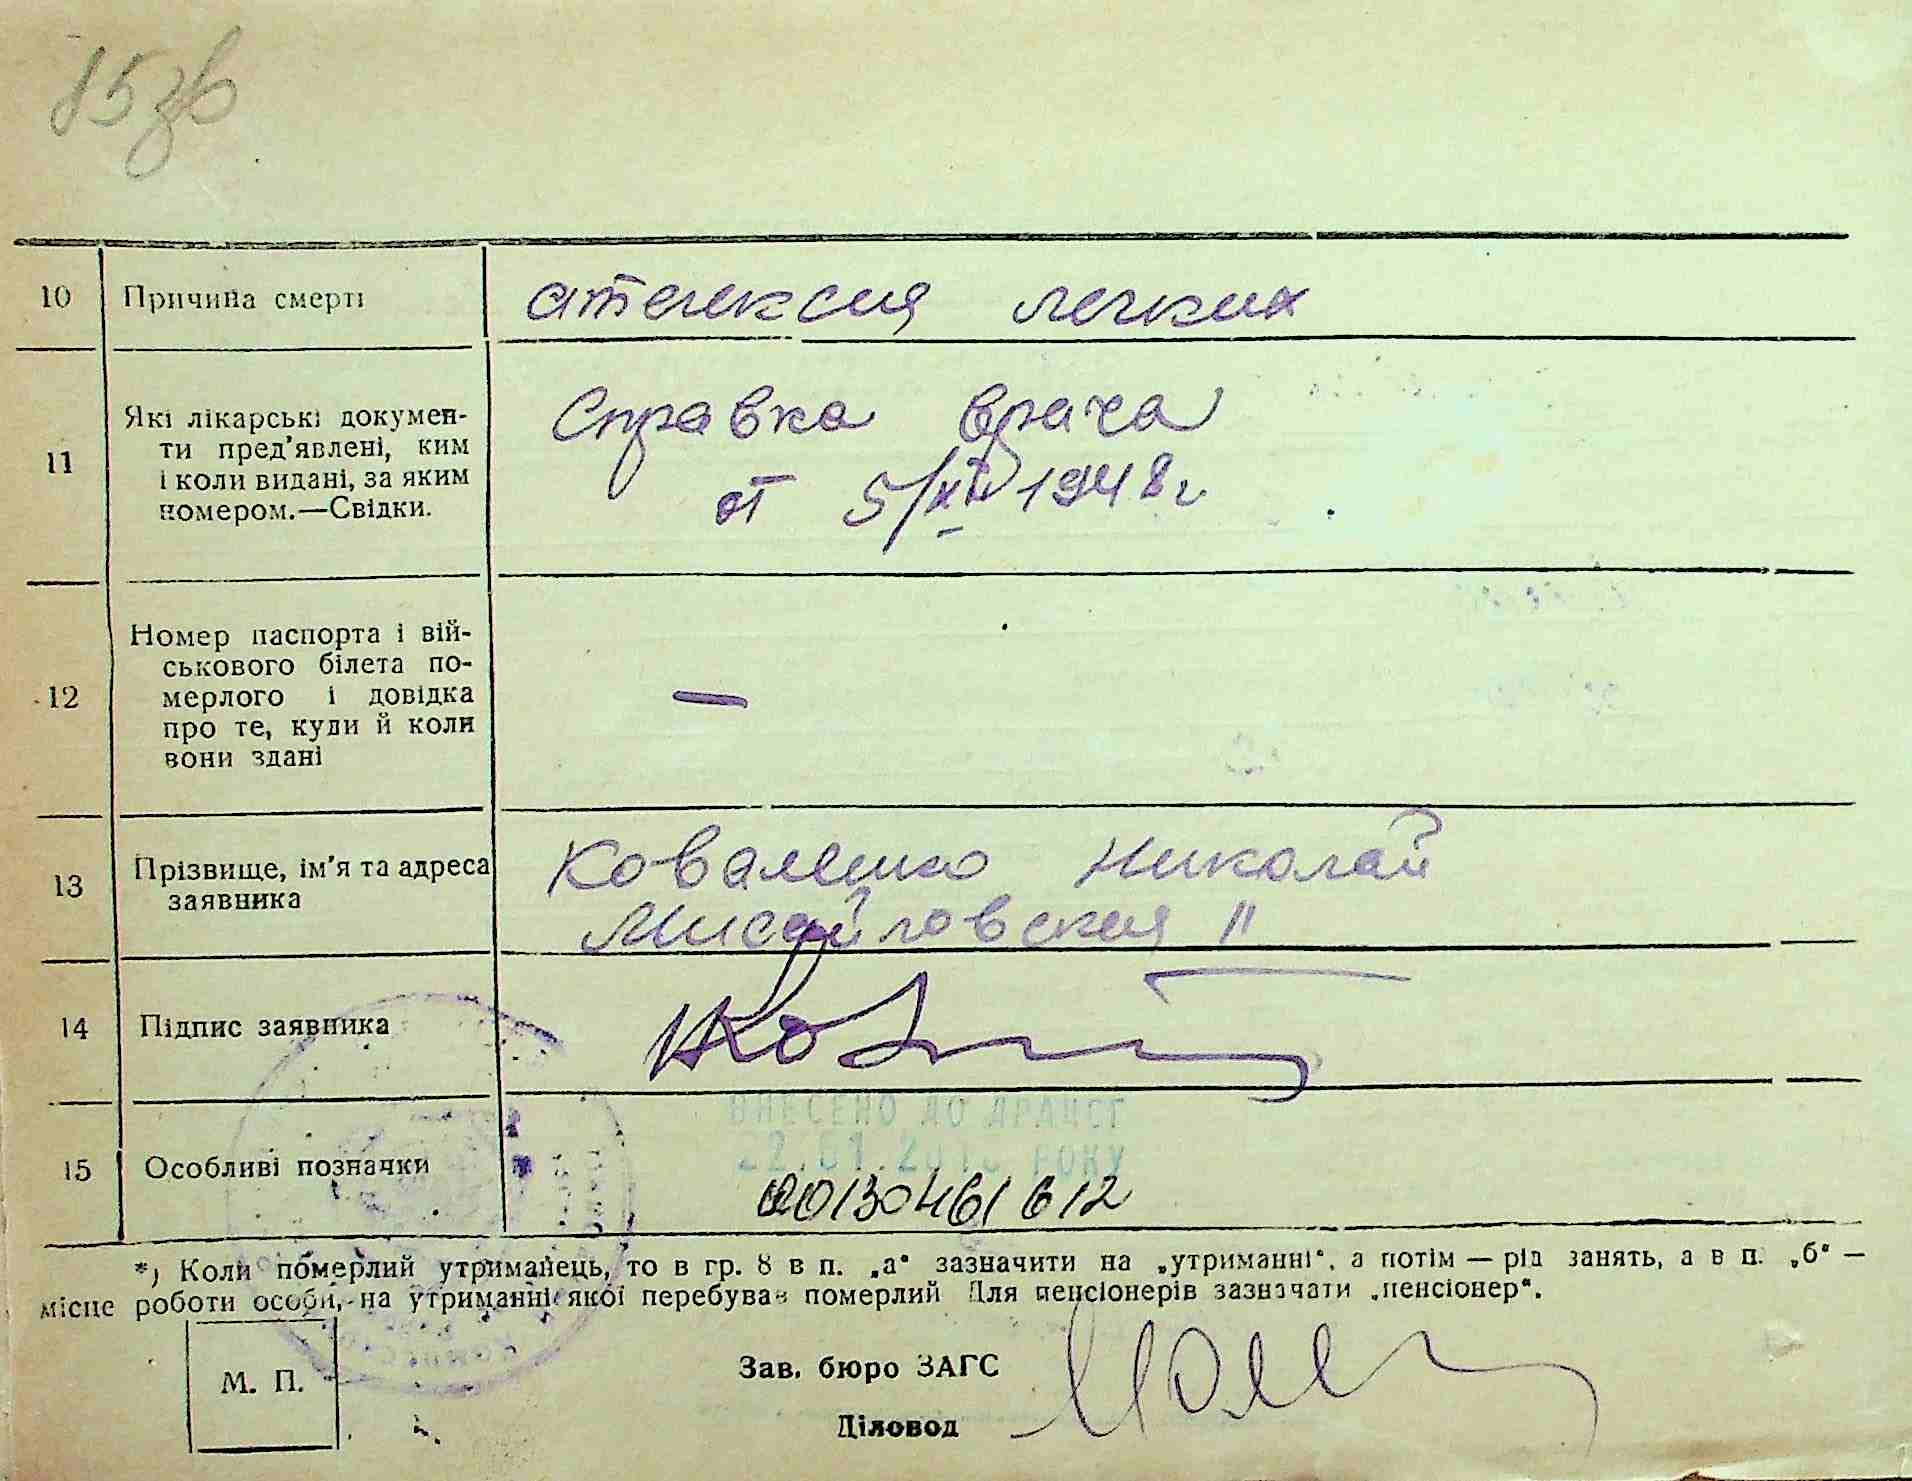 15зв
10 Причина смерті ателексия легких
11 Які лікарські докумен-
ти пред'явлені, ким
і коли видані, за яким
номером.—Свідки.
Справка врача
от 5/XII 1948 г.
12 Номер паспорта і вій-
ськового білета по-
мерлого і довідка
про те, куди й коли
вони здані
—
13 Прізвище, ім'я та адреса
заявника
Коваленко Николай
Мисайловская 11
14 Підпис заявника
ВНЕСЕНО ДО ДРАЦСГ
РОКУ
15 Особливі позначки
00130461612
*) Коли померлий утриманець, то в гр. 8 в п. „а“ зазначити на „утриманні“, а потім — рід занять, а в п. „б“ —
місце роботи особи, на утриманні якої перебував померлий Для пенсіонерів зазначати „пенсіонер“.
М. П.
Зав. бюро ЗАГС
Діловод